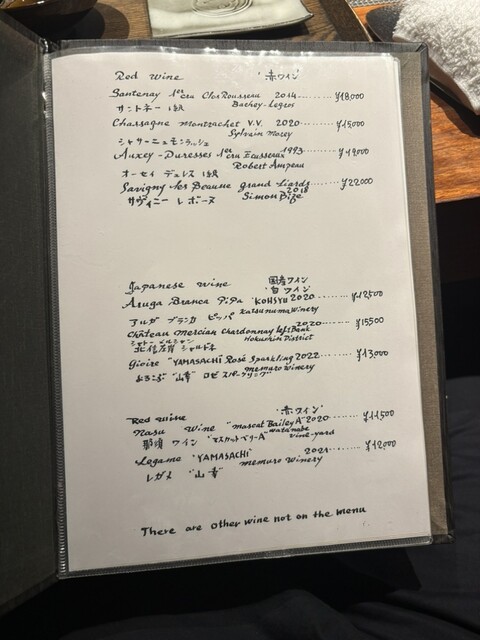 Red wine '赤ワイン'
Santenay 1er cru Clos Rousseau 2014 ........ ¥18,000
サントネー 1級 Bachey-Legros
Chassagne montrachet V.V. 2020 ........ ¥15,000
Sylvain Morey
シャサーニュモンラッシェ
Auxey-Duresses 1er cru Ecusseaux 1993 ........ ¥19,000
Robert Ampeau
オーセイ デュレス 1級
Savigny les Beaune grand Liards ........ ¥22,000
2018
サヴィニー レ ボーヌ Simon Bize
Japanese wine 国産ワイン
'白ワイン'
Aruga Branca Pipa 'KOHSYU' 2020 ........ ¥12,500
Katsunuma Winery
アルガ ブランカ ピッパ
Château Mercian Chardonnay Left Bank 2020 ...... ¥15,500
Hokushin District
シャトー メルシャン
北信左岸 シャルドネ
Gioire "YAMASACHI" Rosé Sparkling 2022 ....... ¥13,000
memuro Winery
よろこぶ "山幸" ロゼ スパークリング
Red wine '赤ワイン'
Nasu Wine "mascat Bailey A" 2020 ........ ¥11,500
watanabe vine-yard
那須 ワイン "マスカットベリーA"
Legame 'YAMASACHI' 2021 ........ ¥12,000
memuro Winery
レガメ "山幸"
There are other wine not on the menu